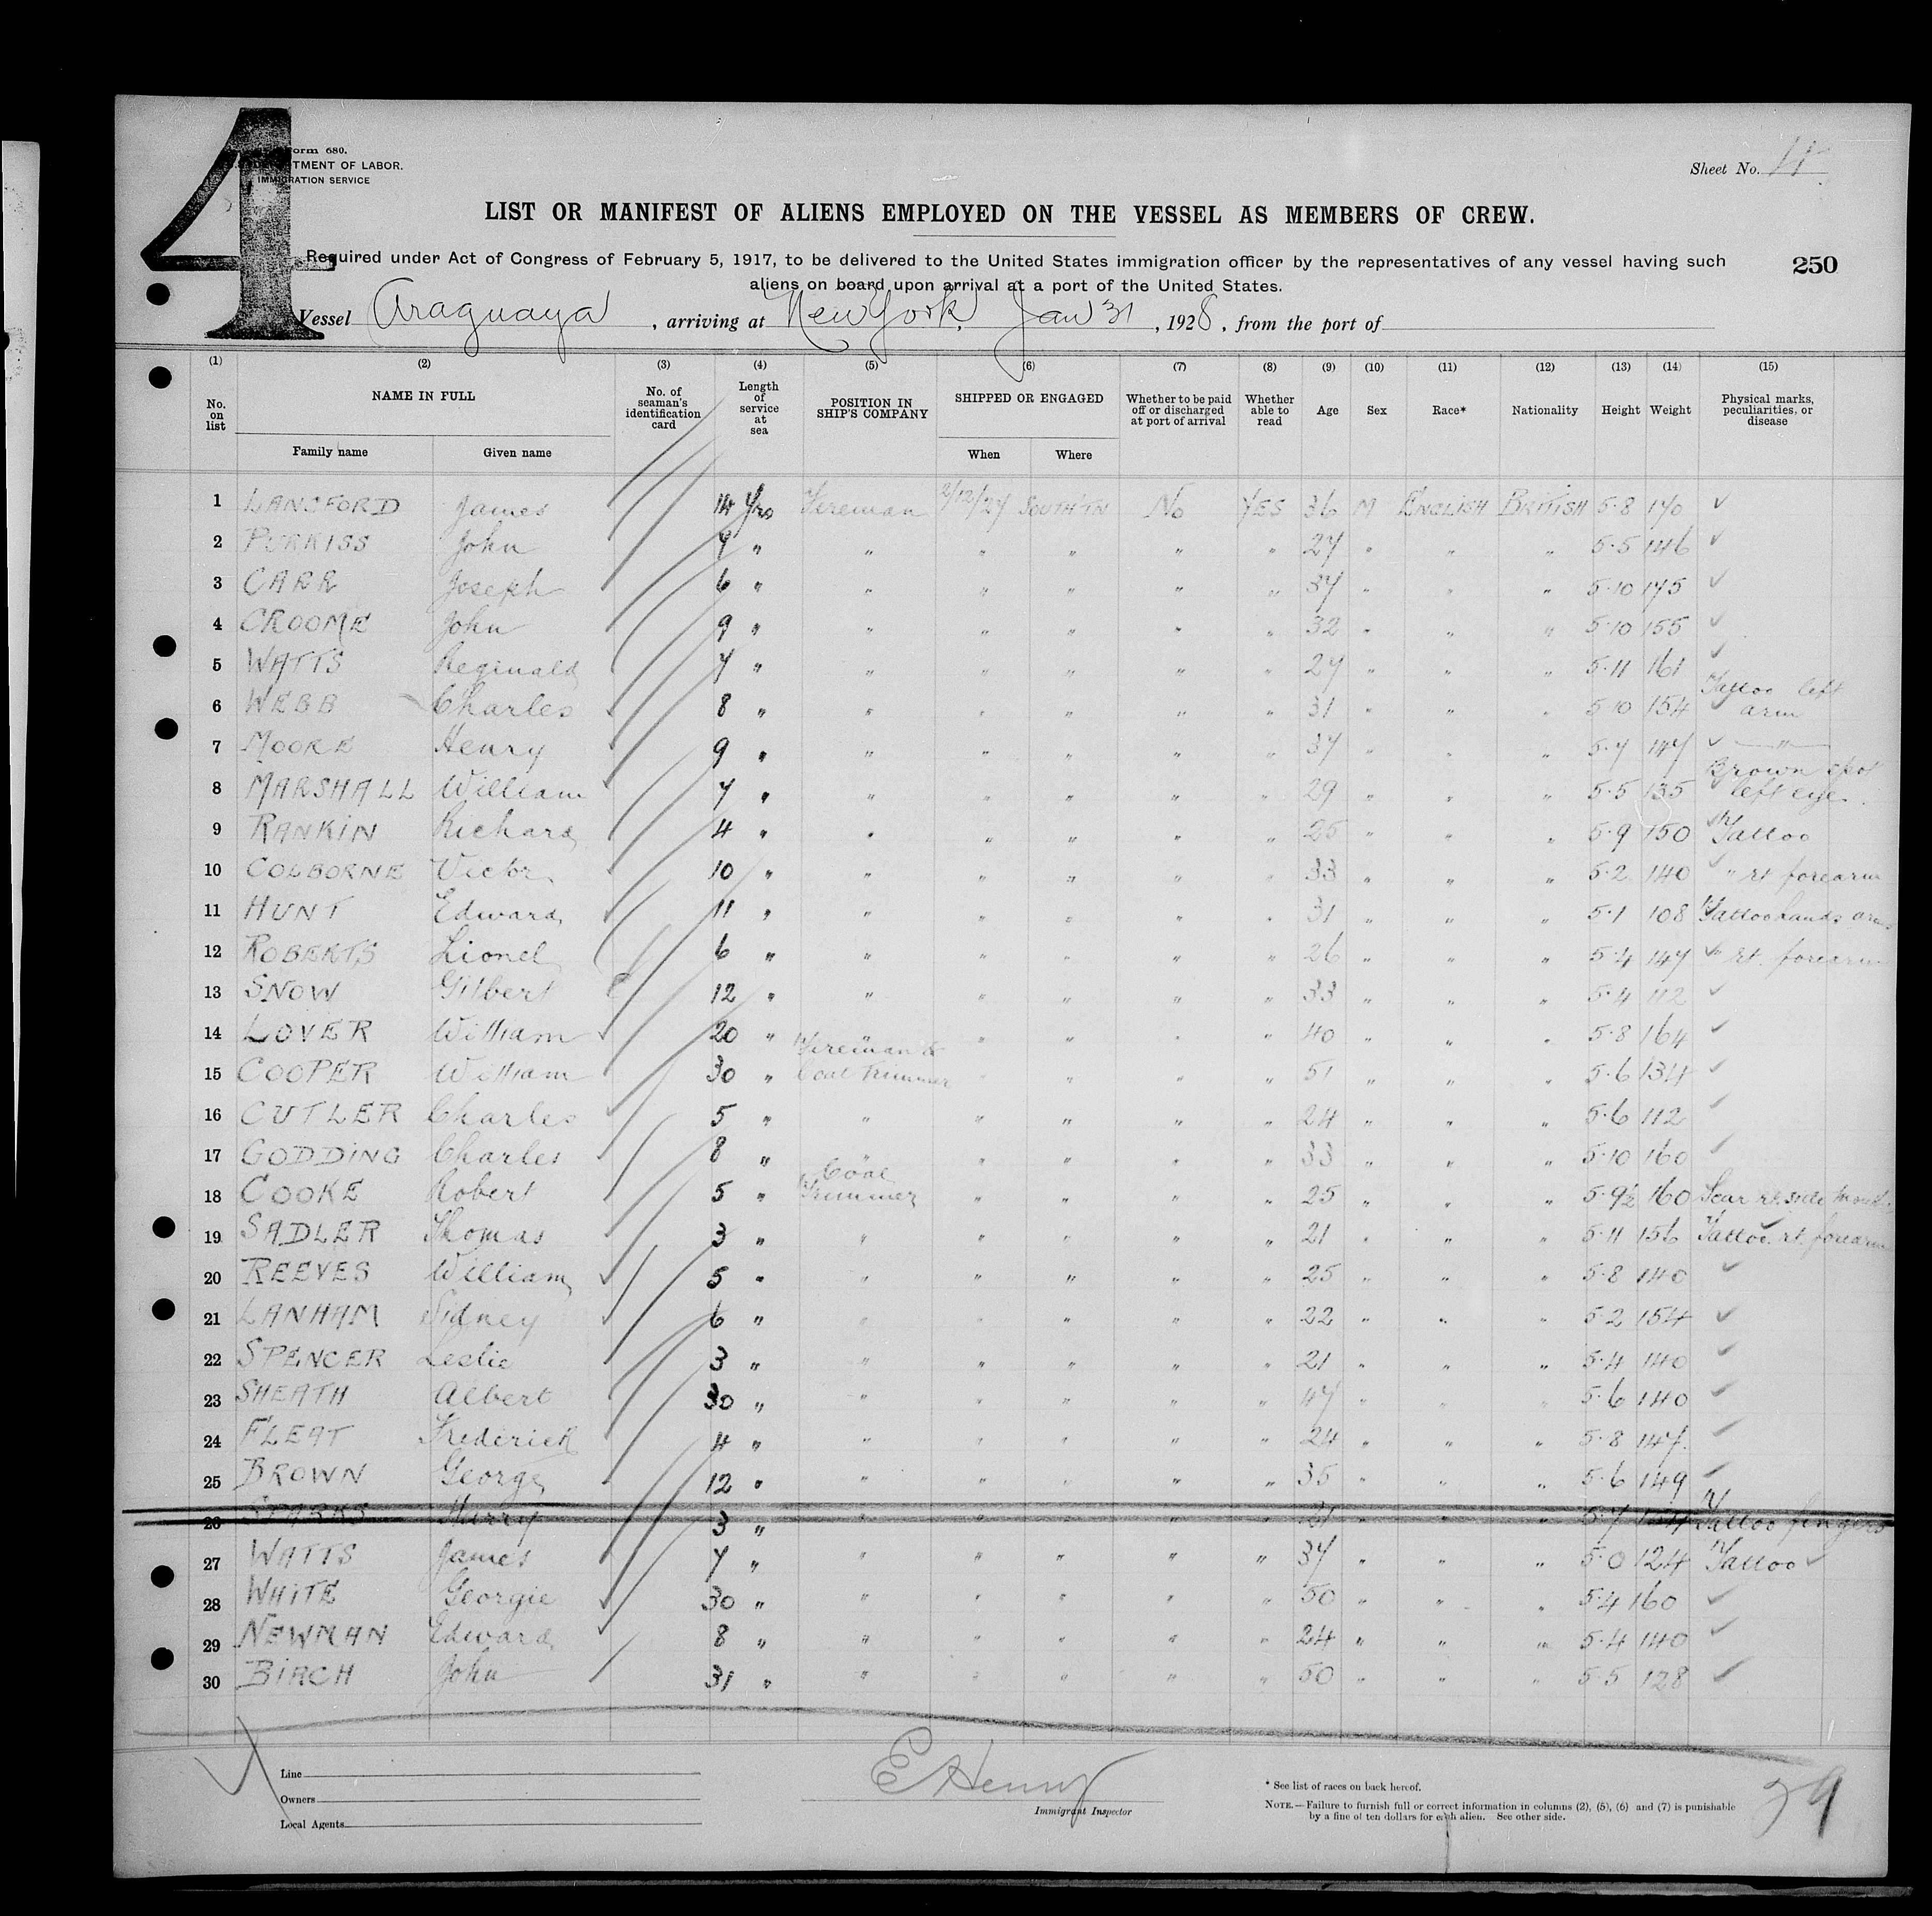 4
Form 680.
DEPARTMENT OF LABOR.
IMMIGRATION SERVICE
Sheet No.
LIST OR MANIFEST OF ALIENS EMPLOYED ON THE VESSEL AS MEMBERS OF CREW.
Required under Act of Congress of February 5, 1917, to be delivered to the United States immigration officer by the representatives of any vessel having such
aliens on board upon arrival at a port of the United States.
250
Vessel Araguaya , arriving at New York, Jan 31 , 1928 , from the port of
(1) (2) (3) (4) (5) (6) (7) (8) (9) (10) (11) (12) (13) (14) (15)
No. on list NAME IN FULL Family name Given name No. of seaman's identification card Length of service at sea POSITION IN SHIP'S COMPANY SHIPPED OR ENGAGED When Where Whether to be paid off or discharged at port of arrival Whether able to read Age Sex Race* Nationality Height Weight Physical marks, peculiarities, or disease
1 LANGFORD James 14 Yrs Fireman 2/12/27 SOUTH'TN No YES 36 M ENGLISH BRITISH 5·8 170 ✓
2 PURKISS John 9 " " " " " " 27 " " " 5·5 146 ✓
3 CARR Joseph 6 " " " " " " 37 " " " 5·10 175 ✓
4 CROOME John 9 " " " " " " 32 " " " 5·10 155 ✓
5 WATTS Reginald 7 " " " " " " 27 " " " 5·11 161 ✓
6 WEBB Charles 8 " " " " " " 31 " " " 5·10 154 ✓ Tattoo left arm
7 MOORE Henry 9 " " " " " " 37 " " " 5·7 147 ✓ "
8 MARSHALL William 7 " " " " " " 29 " " " 5·5 135 ✓ Brown spot left eye
9 RANKIN Richard 4 " " " " " " 25 " " " 5·9 150 ✓ Tattoo
10 COLBORNE Victor 10 " " " " " " 33 " " " 5·2 140 ✓ " rt forearm
11 HUNT Edward 11 " " " " " " 31 " " " 5·1 108 ✓ Tattoo hands
12 ROBERTS Lionel 6 " " " " " " 26 " " " 5·4 147 ✓ " rt. forearm
13 SNOW Gilbert 12 " " " " " " 33 " " " 5·4 112 ✓
14 LOVER William 20 " " " " " " 40 " " " 5·8 164 ✓
15 COOPER William 30 " Fireman & Coal Trimmer " " " " 51 " " " 5·6 134 ✓
16 CUTLER Charles 5 " " " " " " 24 " " " 5·6 112 ✓
17 GODDING Charles 8 " " " " " " 33 " " " 5·10 160 ✓
18 COOKE Robert 5 " Coal Trimmer " " " " 25 " " " 5·9½ 160 Scar rt. side
19 SADLER Thomas 3 " " " " " " 21 " " " 5·11 156 Tattoo rt. forearm ✓
20 REEVES William 5 " " " " " " 25 " " " 5·8 140 ✓
21 LANHAM Sidney 6 " " " " " " 22 " " " 5·2 154 ✓
22 SPENCER Leslie 3 " " " " " " 21 " " " 5·4 140 ✓
23 SHEATH Albert 30 " " " " " " 47 " " " 5·6 140 ✓
24 FLEAT Frederick 4 " " " " " " 24 " " " 5·8 147 ✓
25 BROWN George 12 " " " " " " 35 " " " 5·6 149 ✓
26 SPARKS Harry 3 " " " " " " 21 " " " 5·7 Tattoo fingers
27 WATTS James 7 " " " " " " 37 " " " 5·0 124 Tattoo ✓
28 WHITE Georgie 30 " " " " " " 50 " " " 5·4 160 ✓
29 NEWMAN Edward 8 " " " " " " 24 " " " 5·4 140 ✓
30 BIRCH John 31 " " " " " " 50 " " " 5·5 128 ✓
Line
Owners
Local Agents
E Henny
Immigrant Inspector
* See list of races on back hereof.
NOTE.—Failure to furnish full or correct information in columns (2), (5), (6) and (7) is punishable
by a fine of ten dollars for each alien. See other side.
29